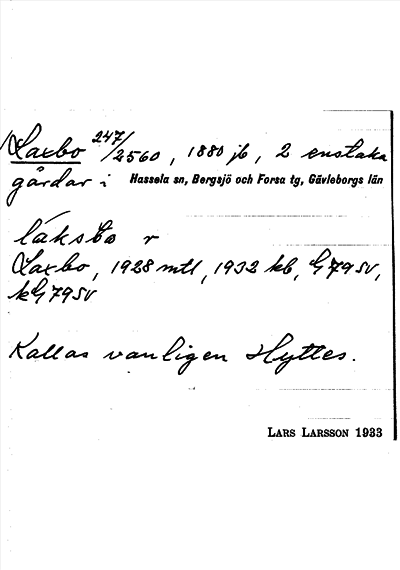 Laxbo 247/2560, 1880 jb, 2 enstaka
gårdar i Hassela sn, Bergsjö och Forsa tg, Gävleborgs län
Laxbo, 1928 mtl, 1932 kb, G 79 SV,
kG 79 SV
Kallas vanligen Hyttes.
LARS LARSSON 1933